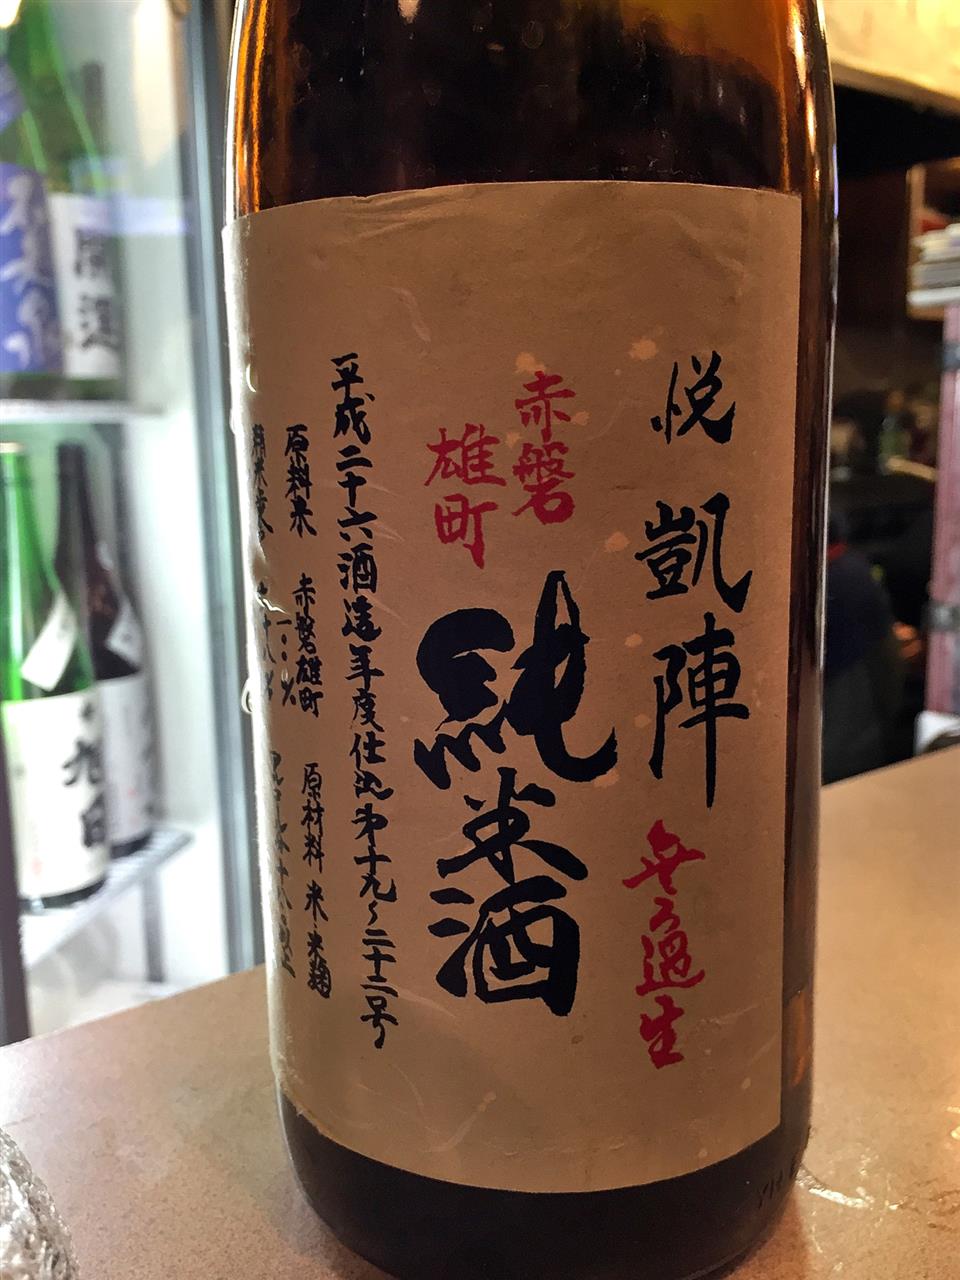 悦 凱陣
無ろ過生
赤磐
雄町
純米酒
平成二十六酒造年度仕込第十九〜二十二号
原料米 赤磐雄町 一〇〇%
原材料 米・米麹
精米歩合 六十八%
旭日